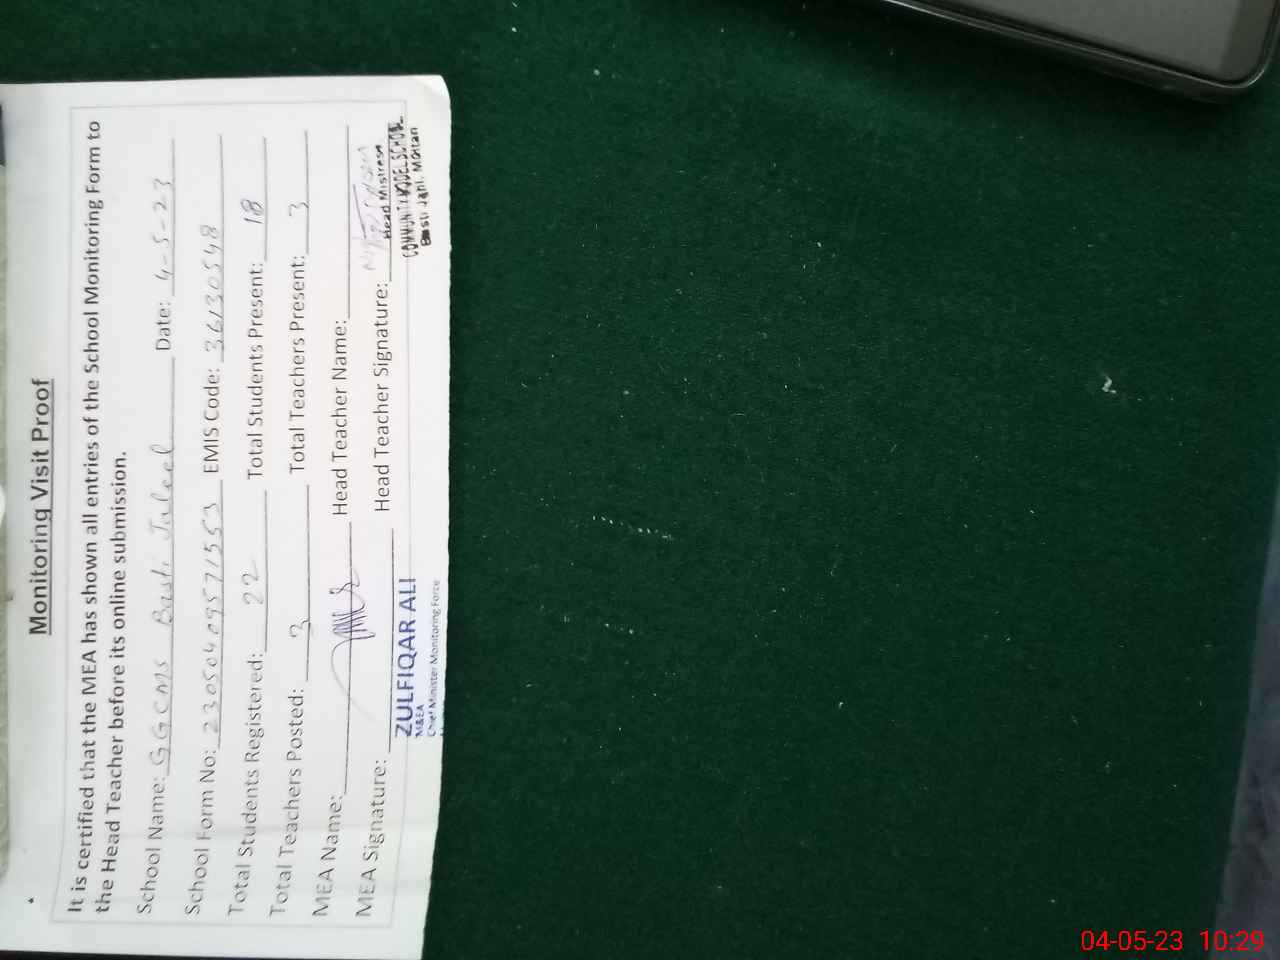 Monitoring Visit Proof
It is certified that the MEA has shown all entries of the School Monitoring Form to
the Head Teacher before its online submission.
School Name: GGCMS Basti Jaleel Date: 4-5-23
School Form No: 23050409571553 EMIS Code: 36130548
Total Students Registered: 22 Total Students Present: 18
Total Teachers Posted: 3 Total Teachers Present: 3
MEA Name: Head Teacher Name:
MEA Signature: Head Teacher Signature:
Head Mistress
COMMUNITY MODEL SCHOOL
Basti Jalil, Multan
ZULFIQAR ALI
M&EA
Chief Minister Monitoring Force
04-05-23 10:29